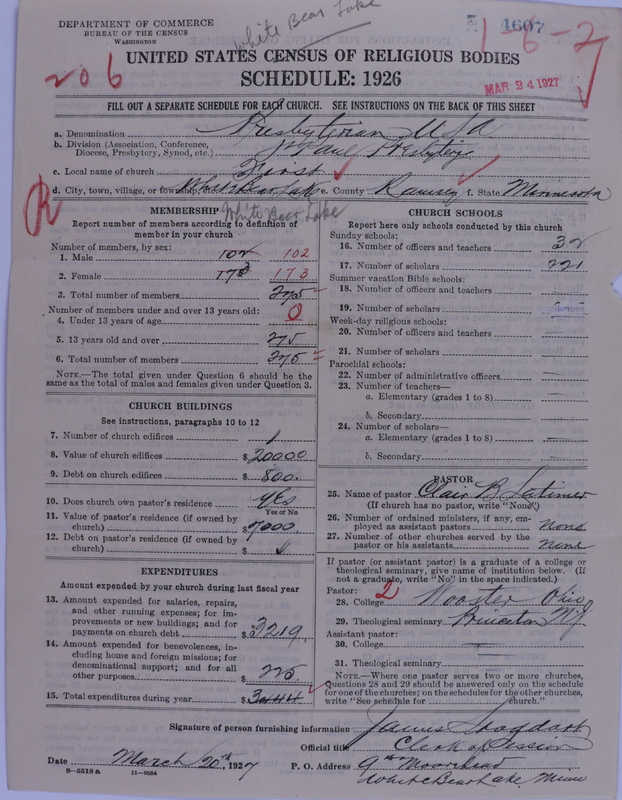 DEPARTMENT OF COMMERCE
BUREAU OF THE CENSUS
WASHINGTON
White Bear Lake
4607
1-6-2
206
UNITED STATES CENSUS OF RELIGIOUS BODIES
SCHEDULE: 1926
MAR 24 1927
FILL OUT A SEPARATE SCHEDULE FOR EACH CHURCH. SEE INSTRUCTIONS ON THE BACK OF THIS SHEET
a. Denomination Presbyterian U.S.A
b. Division (Association, Conference, Diocese, Presbytery, Synod, etc.) St Paul Presbytery
c. Local name of church First
d. City, town, village, or township White Bear Lake e. County Ramsey f. State Minnesota
R
White Bear Lake
MEMBERSHIP
Report number of members according to definition of member in your church
Number of members, by sex:
1. Male 102 102
2. Female 173 173
3. Total number of members 275
Number of members under and over 13 years old:
4. Under 13 years of age 0
5. 13 years old and over 275
6. Total number of members 275
NOTE.—The total given under Question 6 should be the same as the total of males and females given under Question 3.
CHURCH BUILDINGS
See instructions, paragraphs 10 to 12
7. Number of church edifices 1
8. Value of church edifices $20000
9. Debt on church edifices $800.
10. Does church own pastor's residence yes
Yes or No
11. Value of pastor's residence (if owned by church) $7000
12. Debt on pastor's residence (if owned by church) $
EXPENDITURES
Amount expended by your church during last fiscal year
13. Amount expended for salaries, repairs, and other running expenses; for improvements or new buildings; and for payments on church debt $3219
14. Amount expended for benevolences, including home and foreign missions; for denominational support; and for all other purposes $225
15. Total expenditures during year $3444
CHURCH SCHOOLS
Report here only schools conducted by this church
Sunday schools:
16. Number of officers and teachers 32
17. Number of scholars 221
Summer vacation Bible schools:
18. Number of officers and teachers
19. Number of scholars
Week-day religious schools:
20. Number of officers and teachers
21. Number of scholars
Parochial schools:
22. Number of administrative officers
23. Number of teachers—
a. Elementary (grades 1 to 8)
b. Secondary
24. Number of scholars—
a. Elementary (grades 1 to 8)
b. Secondary
PASTOR
25. Name of pastor Clair B Latimer
(If church has no pastor, write "None")
26. Number of ordained ministers, if any, employed as assistant pastors none
27. Number of other churches served by the pastor or his assistants none
If pastor (or assistant pastor) is a graduate of a college or theological seminary, give name of institution below. (If not a graduate, write "No" in the space indicated.)
Pastor: 2
28. College Wooster Ohio
29. Theological seminary Princeton N.J.
Assistant pastor:
30. College
31. Theological seminary
NOTE.—Where one pastor serves two or more churches, Questions 28 and 29 should be answered only on the schedule for one of the churches; on the schedules for the other churches, write "See schedule for church."
Signature of person furnishing information James Stoddart
Official title Clerk of Session
Date March 20th, 1927
P. O. Address 9th Moorhead
White Bear Lake, Minn
8—5518a 11—9054